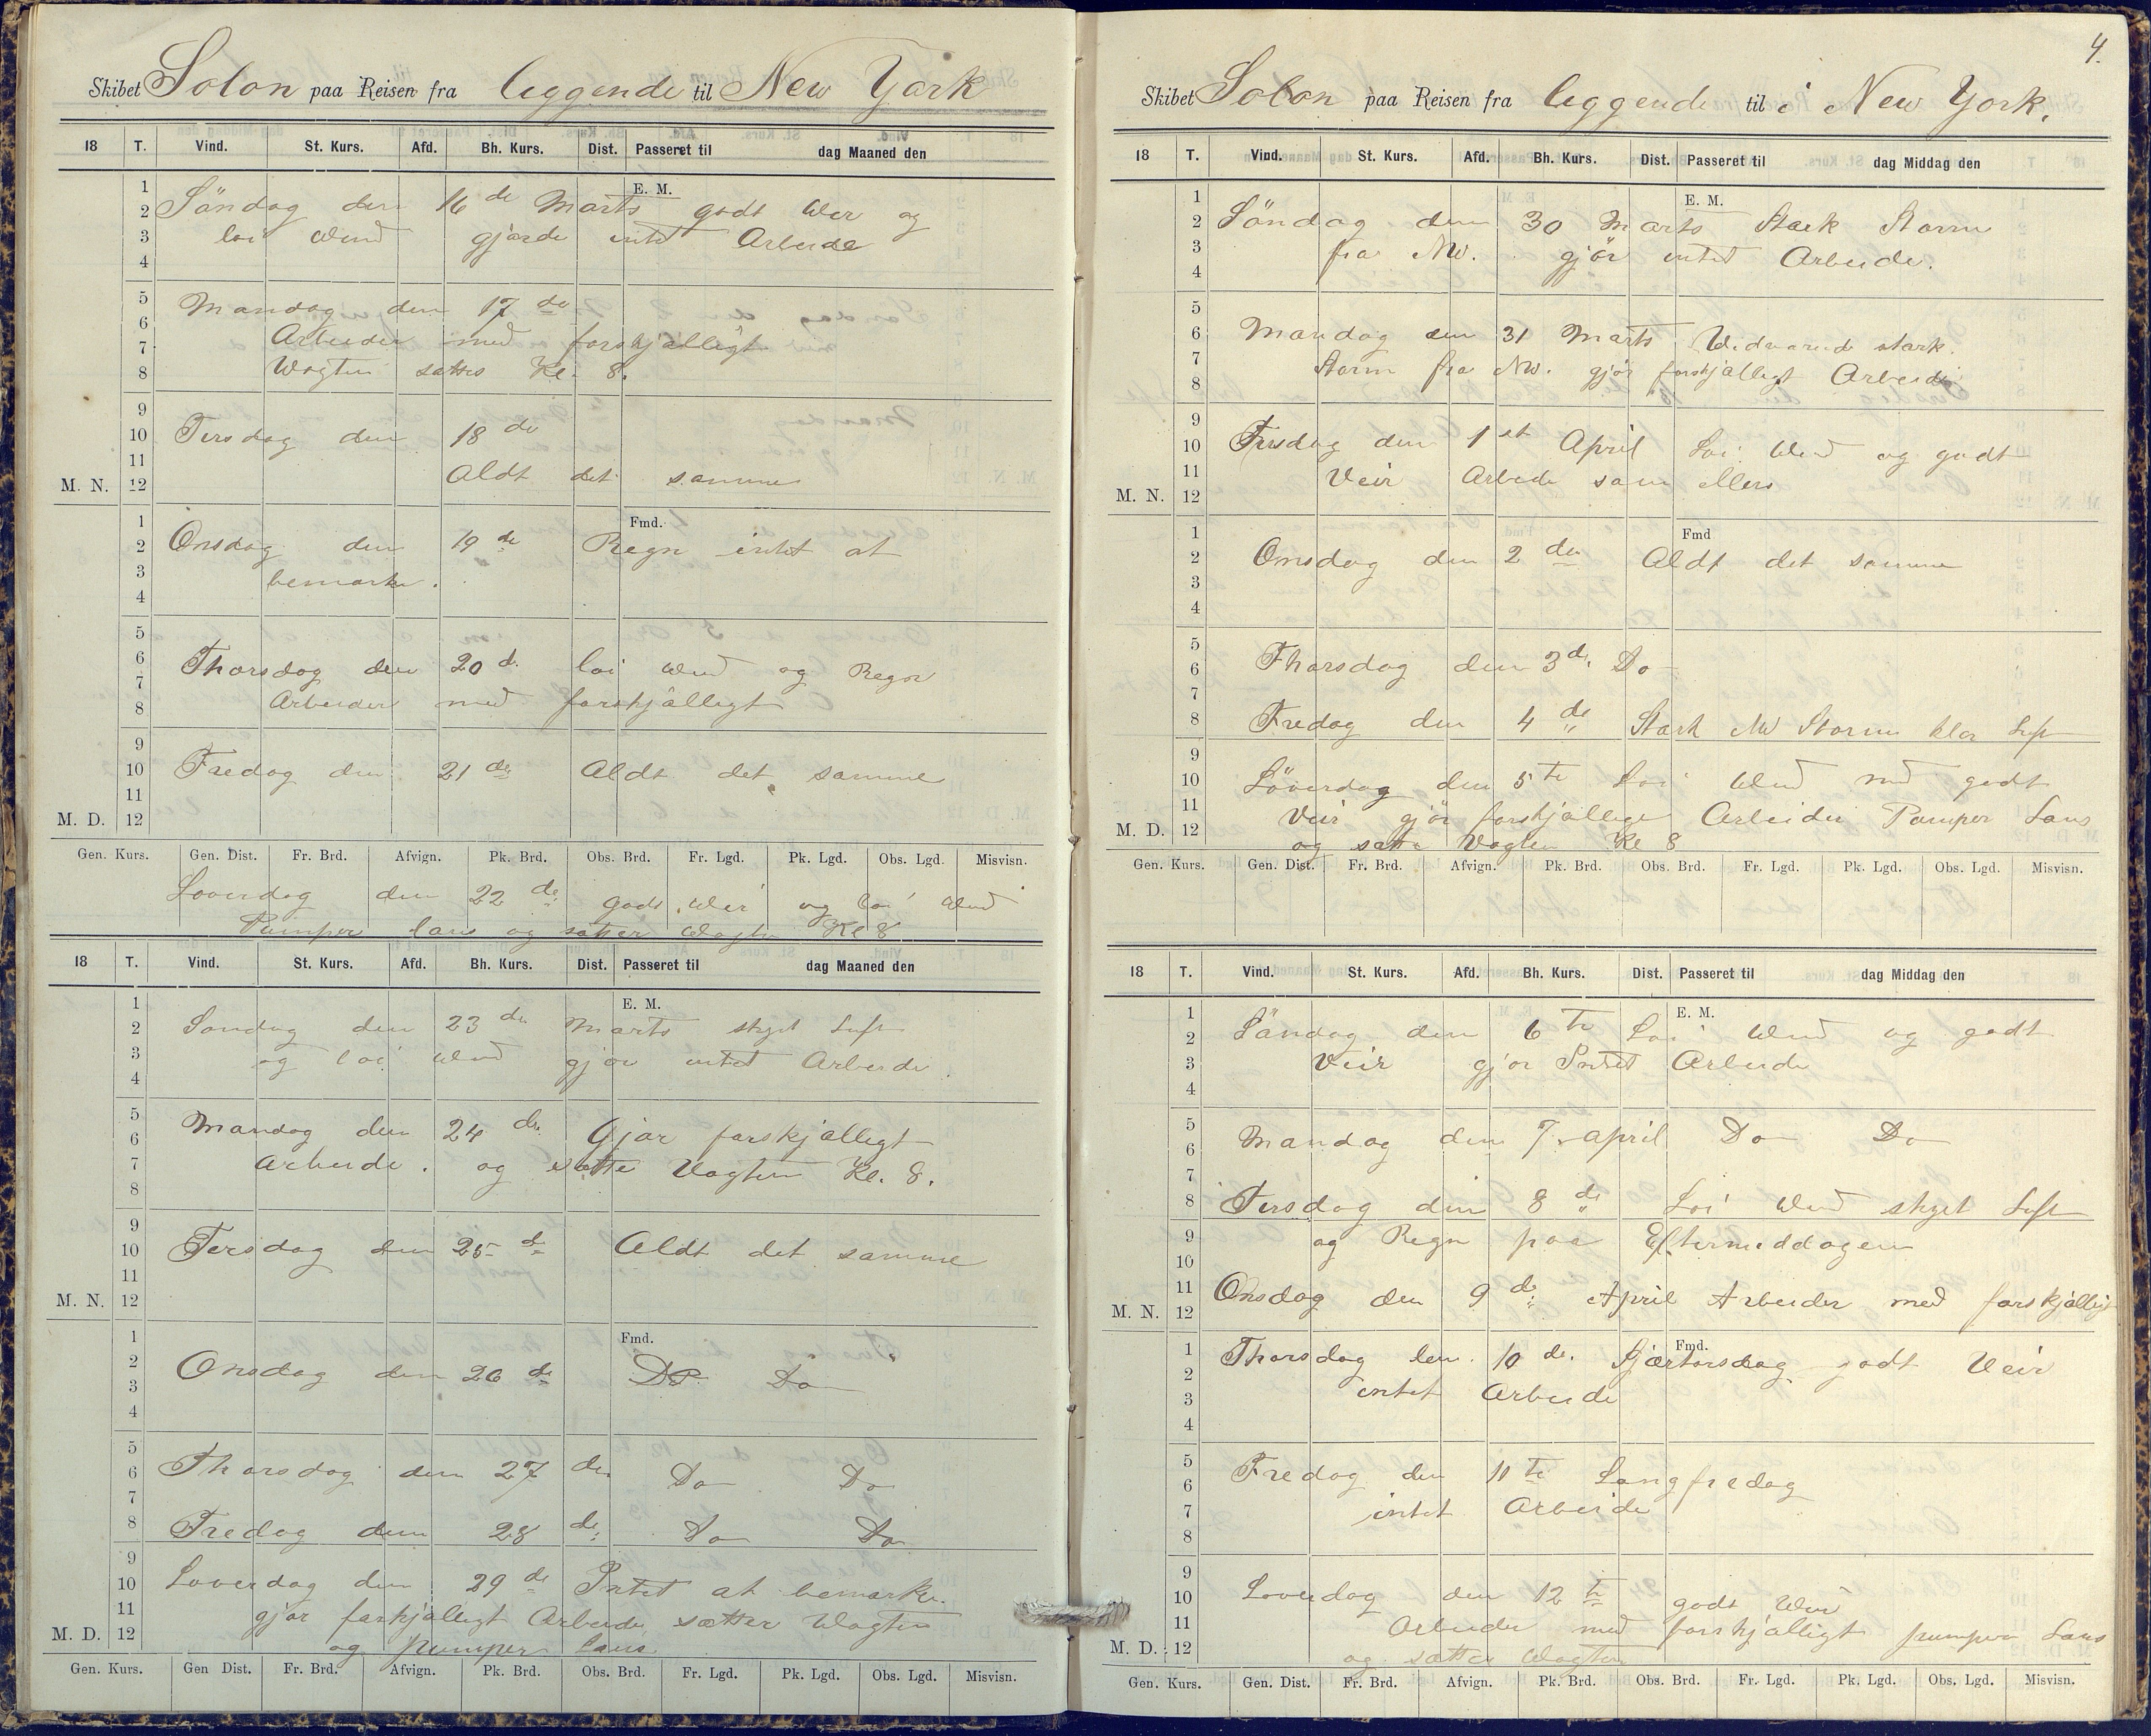 Skibet Solon paa Reisen fra leggende til New York
18 T. Vind. St. Kurs. Afd. Bh. Kurs. Dist. Passeret til dag Maaned den
E. M.
1
2
3
4
Söndag den 16 de Marts godt Veir og
loi Wind gjorde intet Arbeide
5
6
7
8
Mandag den 17 de
Arbeider med forskjälligt
Wagten sattes Kl. 8.
9
10
11
M. N. 12
Tirsdag den 18 de
Aldt det samme
Fmd.
1
2
3
4
Onsdag den 19 de Regn intet at
bemarke.
5
6
7
8
Thorsdag den 20 d. loi Wind og Regn
Arbeider med forskjälligt
9
10
11
M. D. 12
Fredag den 21 de Aldt det samme
Gen. Kurs. Gen. Dist. Fr. Brd. Afvign. Pk. Brd. Obs. Brd. Fr. Lgd. Pk. Lgd. Obs. Lgd. Misvisn.
Loverdag den 22 de godt Weir og loi Wind
Pumper lans og satter Wagten Kl 8
18 T. Vind. St. Kurs. Afd. Bh. Kurs. Dist. Passeret til dag Maaned den
E. M.
1
2
3
4
Sondag den 23 de Marts skyet Luft
og loi Wind gjor intet Arbeide.
5
6
7
8
Mandag den 24 de. Gjor forskjælligt
Arbeide. og satte Vagten Kl. 8.
9
10
11
M. N. 12
Tersdag den 25 d. Aldt det samme
Fmd.
1
2
3
4
Onsdag den 26 de Do Do
5
6
7
8
Thorsdag den 27 de Do Do
Fredag den 28 de Do Do
9
10
11
M. D. 12
Loverdag den 29 de Intet at bemarke.
gjor forkjalligt Arbeide, sætter Wagten
og pumper lans
Gen. Kurs. Gen Dist. Fr. Brd. Afvign. Pk. Brd. Obs. Brd. Fr. Lgd. Pk. Lgd. Obs. Lgd. Misvisn.
4.
Skibet Solon paa Reisen fra leggende til i New York.
18 T. Vind. St. Kurs. Afd. Bh. Kurs. Dist. Passeret til dag Middag den
E. M.
1
2
3
4
Söndag den 30 Marts Stark Storm
fra NW. gjör intet Arbeide.
5
6
7
8
Mandag den 31 Marts Vedvarende stark
Storm fra NW. gjör forskjälligt Arbeide
9
10
11
M. N. 12
Tirsdag den 1 st April Loi Wind og godt
Veir Arbeide som ellers
Fmd
1
2
3
4
Onsdag den 2 den Aldt det samme
5
6
7
8
Thorsdag den 3 d. Do
Fredag den 4 de Stark NW Storm klar Luft
9
10
11
M. D. 12
Löverdag den 5 te Loi Wind med godt
Veir gjör forskjallige Arbeider Pumper Lans
og satte Vagten Kl 8
Gen. Kurs. Gen. Dist. Fr. Brd. Afvign. Pk. Brd. Obs. Brd. Fr. Lgd. Pk. Lgd. Obs. Lgd. Misvisn.
18 T. Vind. St. Kurs. Afd. Bh. Kurs. Dist. Passeret til dag Middag den
E. M.
1
2
3
4
Söndag den 6 te Loi Wind og godt
Veir gjor Intet Arbeide
5
6
7
8
Mandag den 7. april Do Do
Tirsdag den 8 de Loi Wind skyet Luft
9
10
11
M. N. 12
og Regn paa Eftermeddagen
Onsdag den 9 d. April Arbeider med forskjälligt
Fmd.
1
2
3
4
Thorsdag den 10 de. Skjærtorsdag godt Veir
intet Arbeide
5
6
7
8
Fredag den 11 te Langfredag
intet Arbeide
9
10
11
M. D. 12
Loverdag den 12 te godt Weir
Arbeider med forskjälligt pumper Lans
og satter Wagten
Gen. Kurs. Gen. Dist. Fr. Brd. Afvign. Pk. Brd. Obs. Brd. Fr. Lgd. Pk. Lgd. Obs. Lgd. Misvisn.